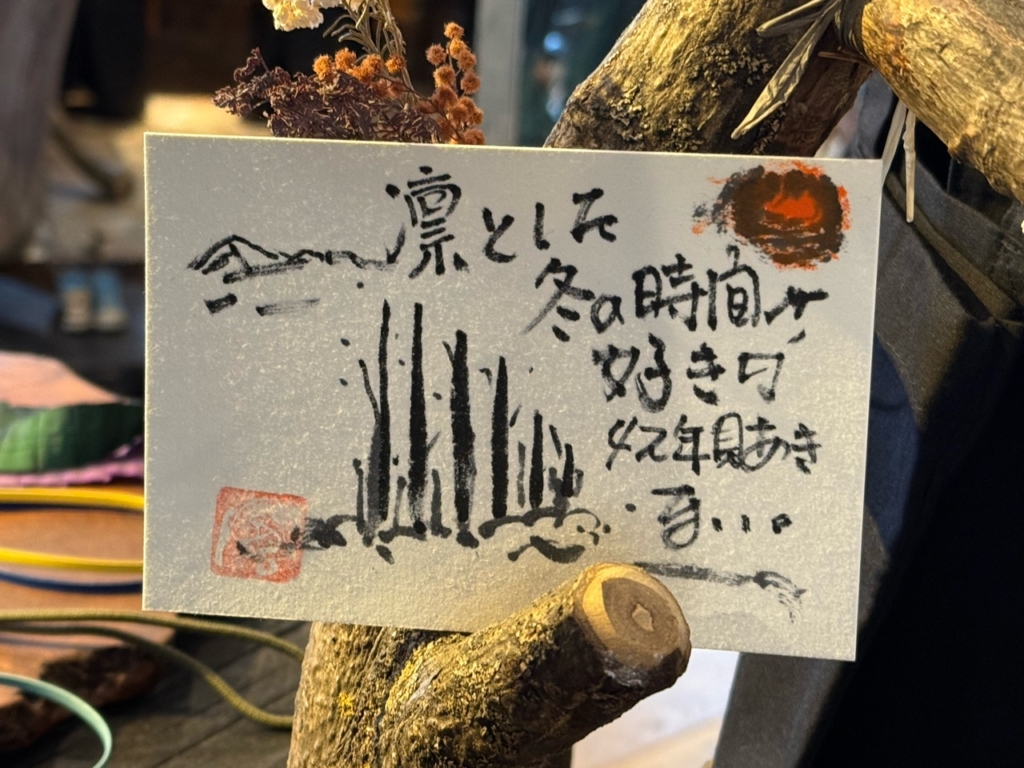 凛とした
冬の時間が
好きで
42年見あき
ず...